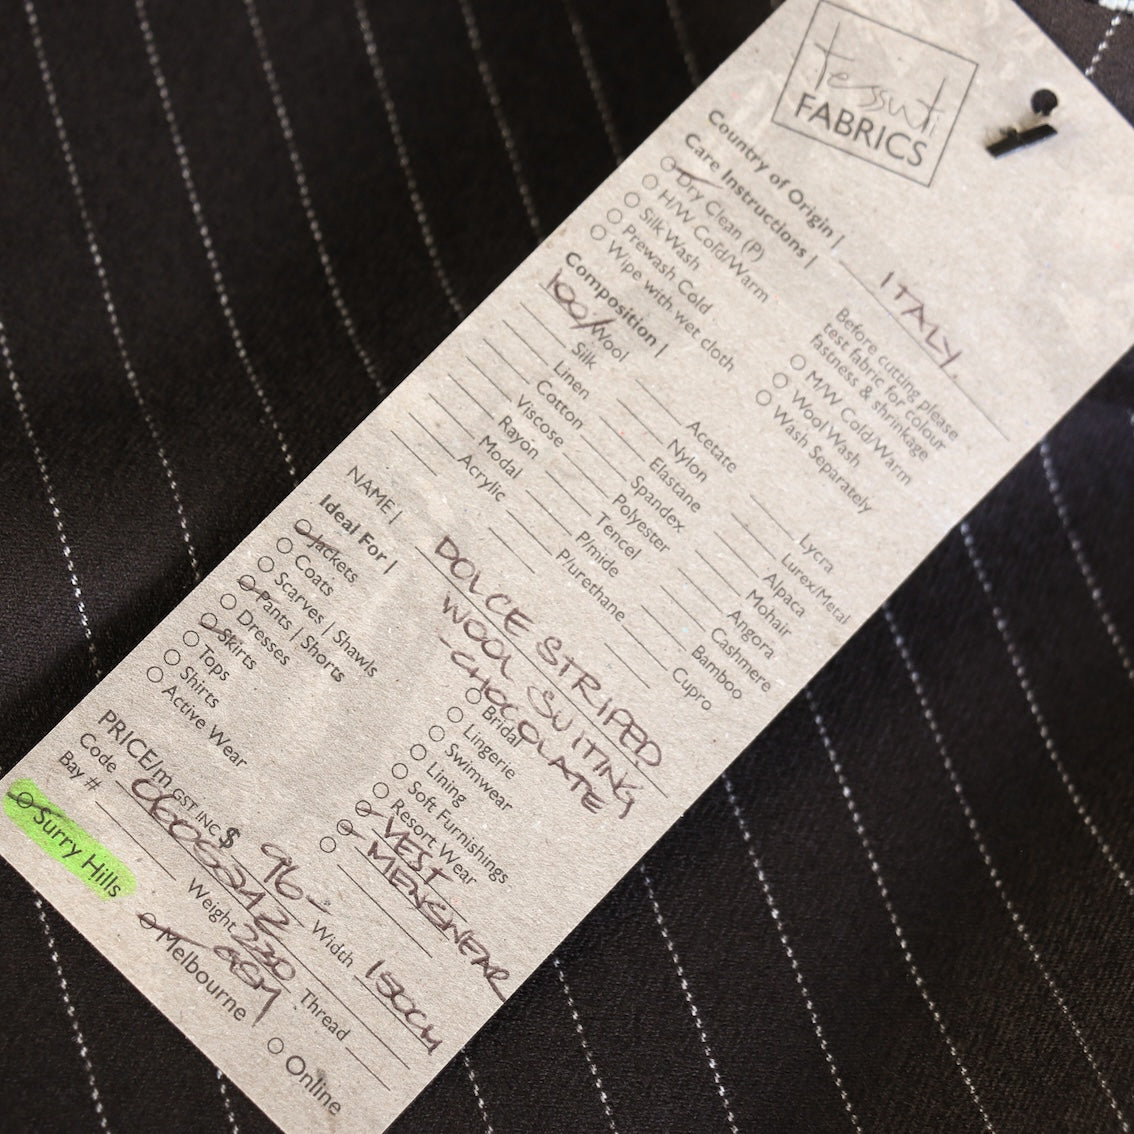 tessuti
FABRICS
Country of Origin | ITALY.
Care Instructions |
Dry Clean (P)
H/W Cold/Warm
Silk Wash
Prewash Cold
Wipe with wet cloth
Before cutting please
test fabric for colour
fastness & shrinkage
M/W Cold/Warm
Wool Wash
Wash Separately
Composition |
100/ Wool
Silk
Linen
Cotton
Viscose
Rayon
Modal
Acrylic
Acetate
Nylon
Elastane
Spandex
Polyester
Tencel
P/mide
P/urethane
Lycra
Lurex/Metal
Alpaca
Mohair
Angora
Cashmere
Bamboo
Cupro
NAME | DOLCE STRIPED
WOOL SUITING
CHOCOLATE
Ideal For |
Jackets
Coats
Scarves | Shawls
Pants | Shorts
Dresses
Skirts
Tops
Shirts
Active Wear
Bridal
Lingerie
Swimwear
Lining
Soft Furnishings
Resort Wear
VEST
MENSWEAR
PRICE/m GST INC $ 96- Width 150CM
Code
Weight 220 Thread
GSM
Bay #
Surry Hills
Melbourne
Online